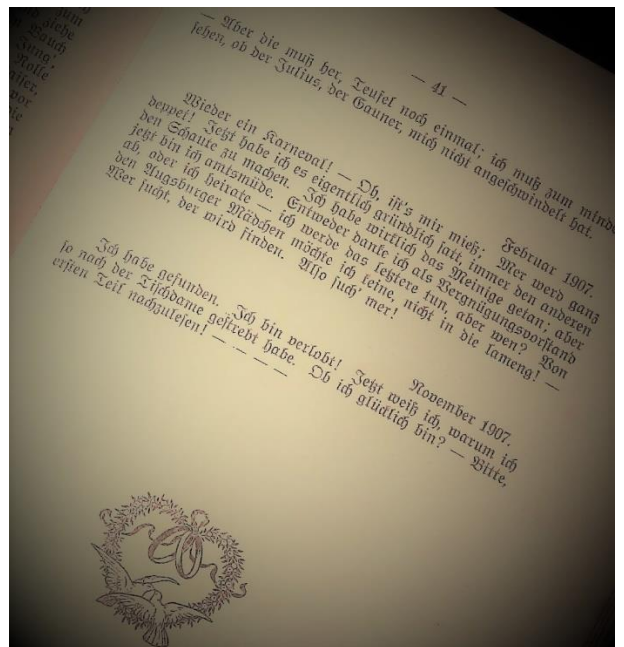 zum
Bauch
Rolle
vor
— 41 —
— Aber die muß her, Teufel noch einmal; ich muß zum minde
sehen, ob der Julius, der Gauner, mich nicht angeschwindelt hat.
Februar 1907.
Wieder ein Karneval! — Oh, ist's mir mieß; Mer werd ganz
deppet! Jetzt habe ich es eigentlich gründlich satt, immer den anderen
den Schaute zu machen. Ich habe wirklich das Meinige getan; aber
jetzt bin ich amtsmüde. Entweder danke ich als Vergnügungsvorstand
ab, oder ich heirate — ich werde das letztere tun, aber wen? Von
den Augsburger Mädchen möchte ich keine, nicht in die lameng! —
Wer sucht, der wird finden. Also such' mer!
November 1907.
Ich habe gefunden. Ich bin verlobt! Jetzt weiß ich, warum ich
so nach der Tischdame gestrebt habe. Ob ich glücklich bin? — Bitte,
ersten Teil nachzulesen! — — — —